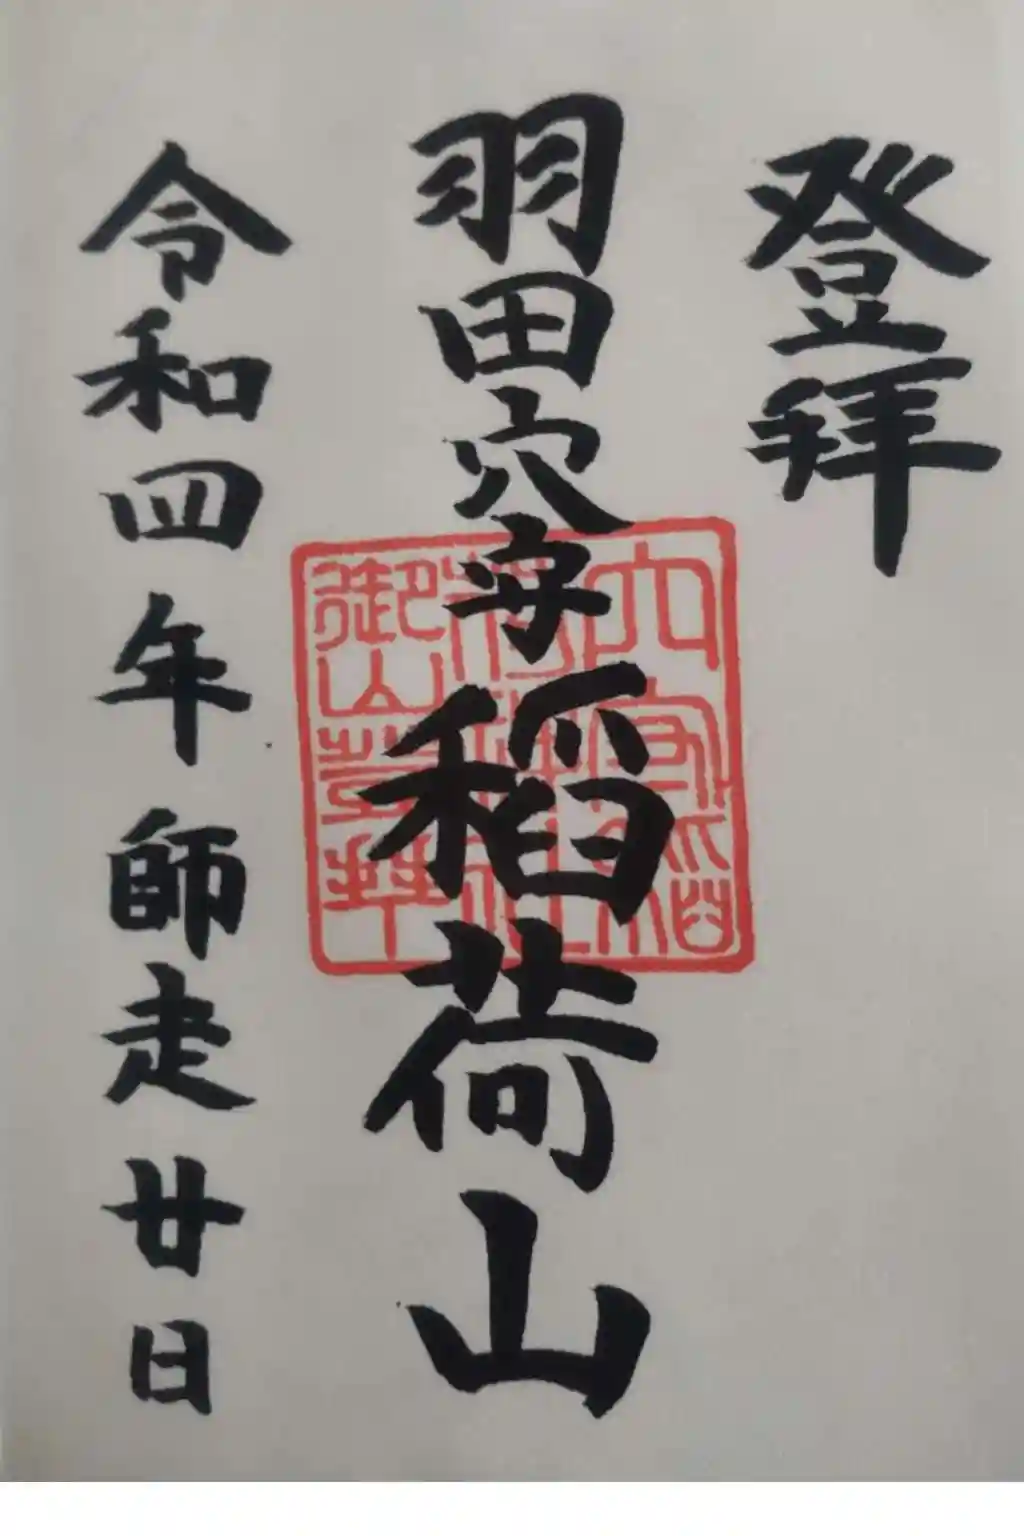 登拝
羽田穴守稲荷山
令和四年 師走廿日